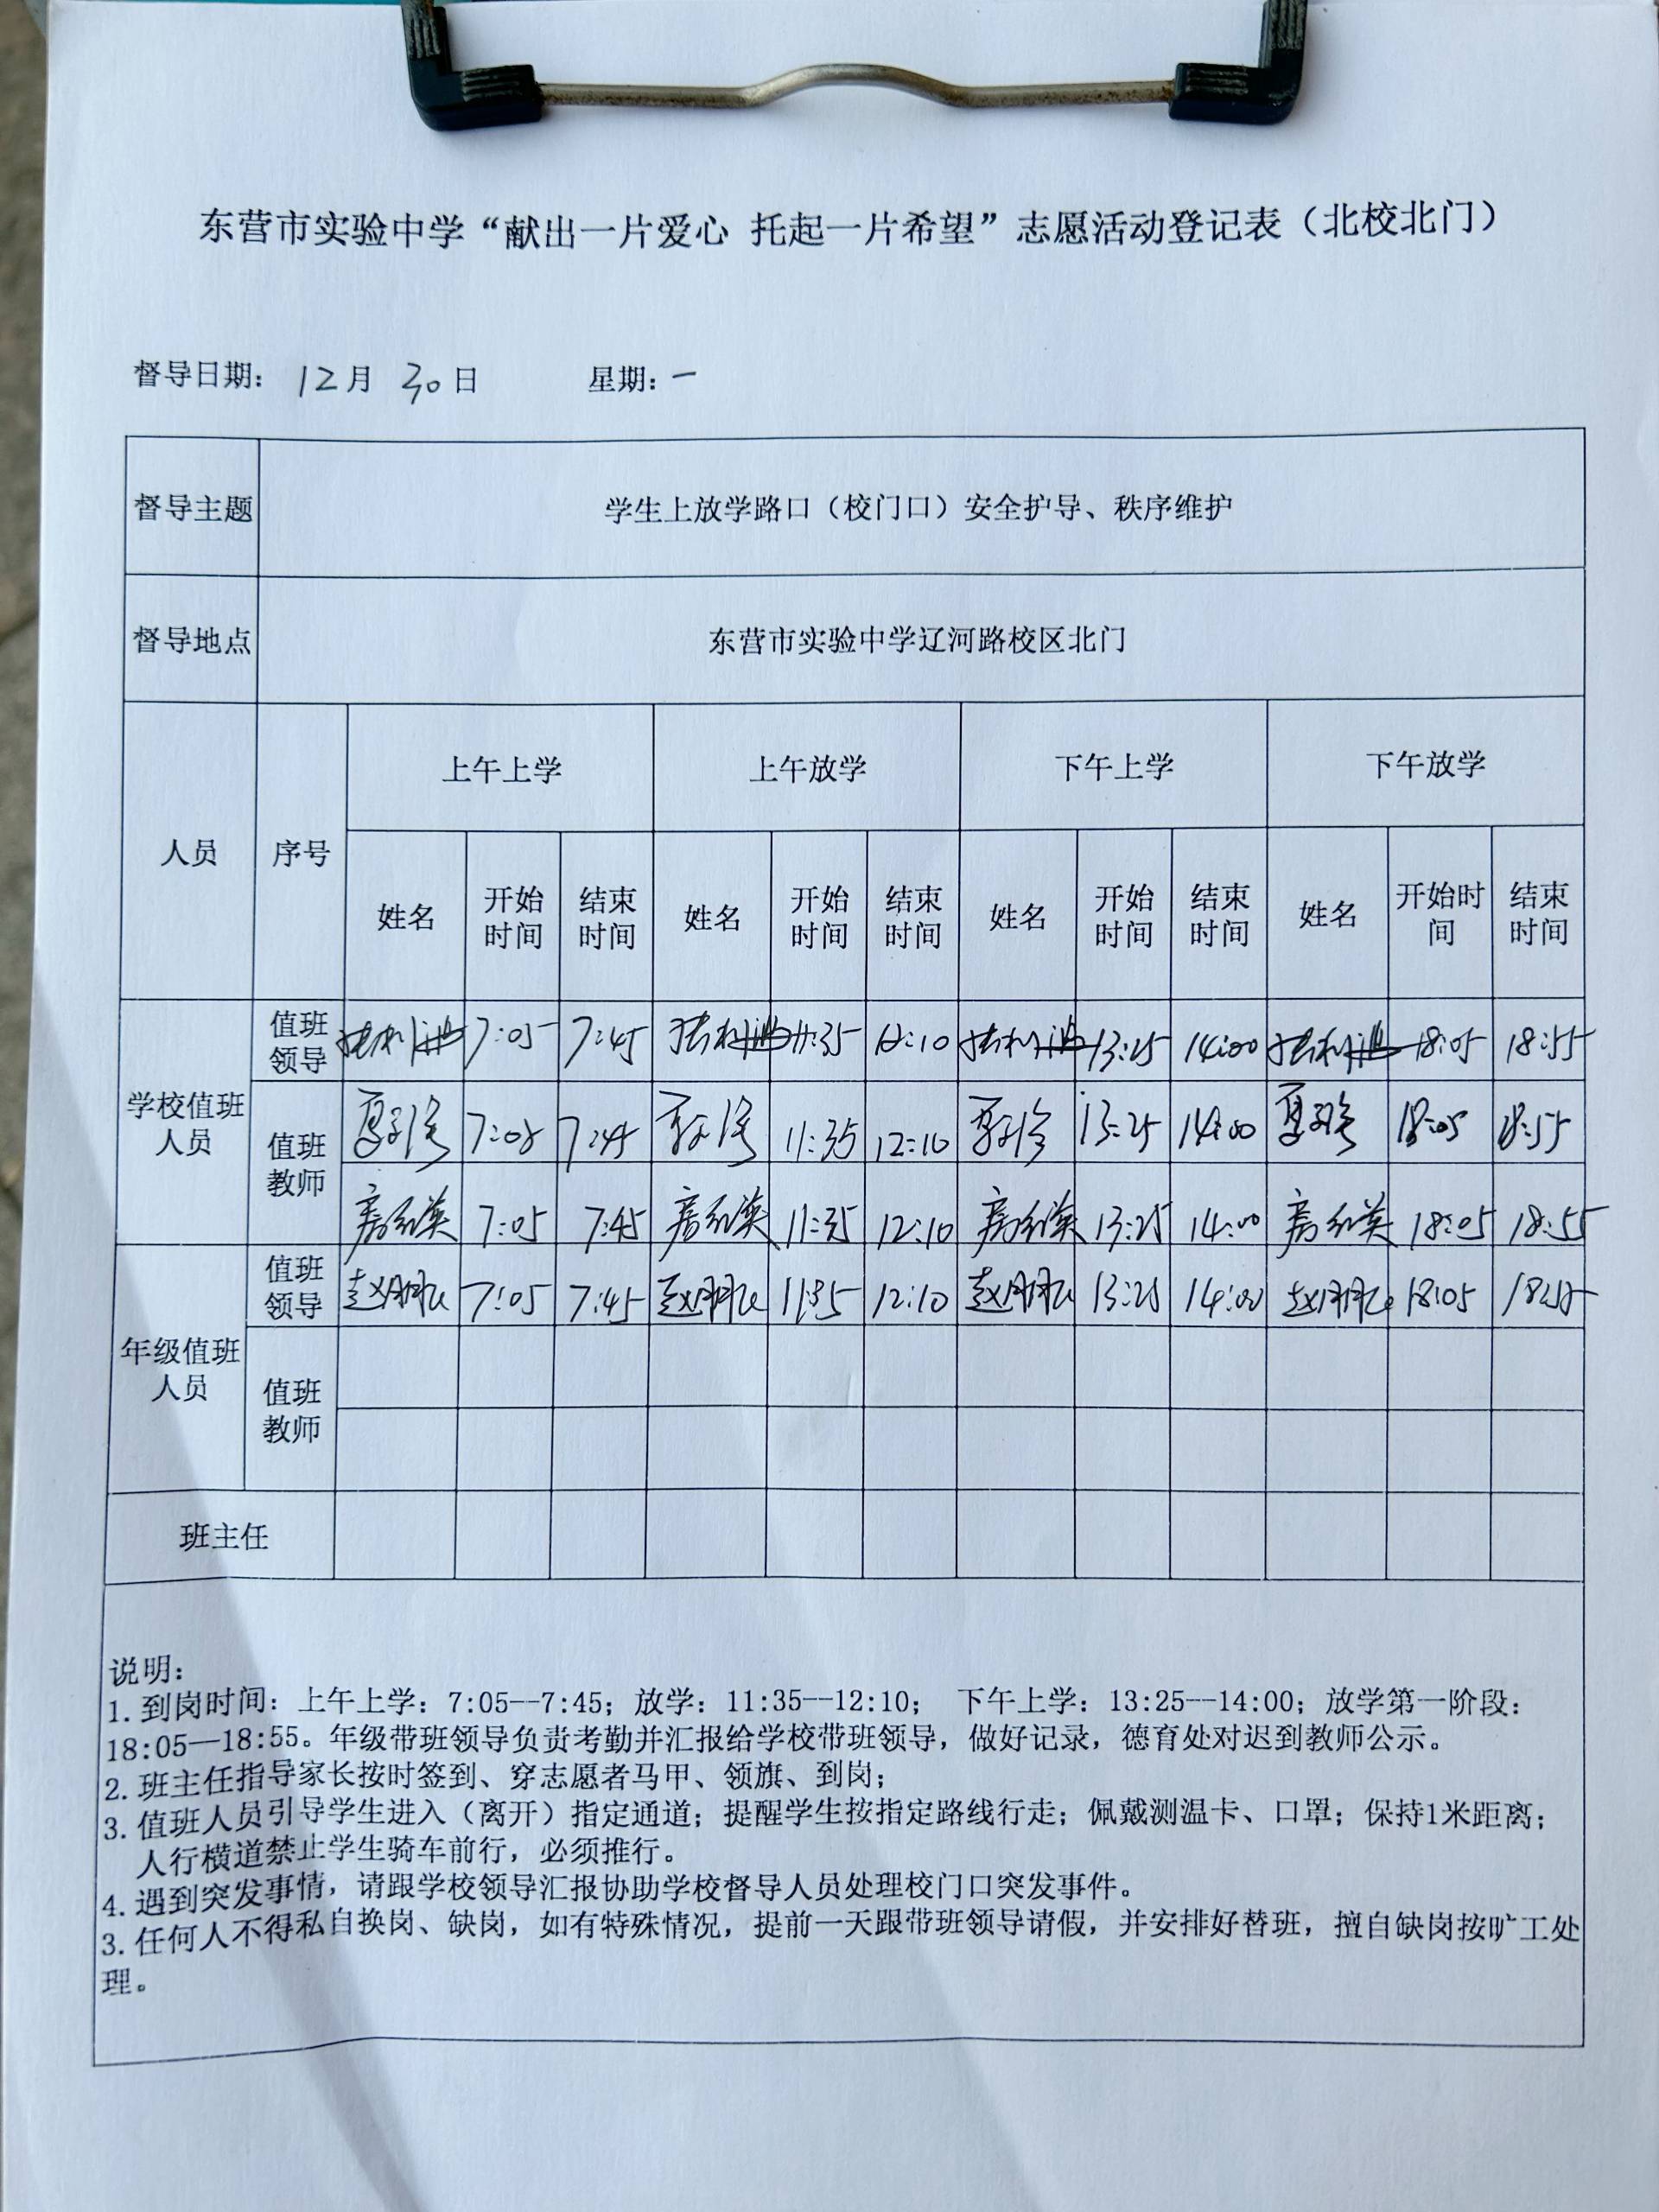 东营市实验中学“献出一片爱心 托起一片希望”志愿活动登记表（北校北门）
督导日期： 12月 30日 星期：一
督导主题 学生上放学路口（校门口）安全护导、秩序维护
督导地点 东营市实验中学辽河路校区北门
人员 序号 上午上学 上午放学 下午上学 下午放学
姓名 开始时间 结束时间 姓名 开始时间 结束时间 姓名 开始时间 结束时间 姓名 开始时间 结束时间
学校值班人员 值班领导 7:05 7:45 11:35 12:10 13:25 14:00 18:05 18:55
值班教师 7:05 7:45 11:35 12:10 13:25 14:00 18:05 18:55
房红英 7:05 7:45 房红英 11:35 12:10 房红英 13:25 14:00 房红英 18:05 18:55
年级值班人员 值班领导 7:05 7:45 11:35 12:10 13:25 14:00 18:05 18:55
值班教师
班主任
说明：
1. 到岗时间：上午上学：7:05--7:45；放学：11:35--12:10； 下午上学：13:25--14:00；放学第一阶段：
18:05—18:55。年级带班领导负责考勤并汇报给学校带班领导，做好记录，德育处对迟到教师公示。
2. 班主任指导家长按时签到、穿志愿者马甲、领旗、到岗；
3. 值班人员引导学生进入（离开）指定通道；提醒学生按指定路线行走；佩戴测温卡、口罩；保持1米距离；
人行横道禁止学生骑车前行，必须推行。
4. 遇到突发事情，请跟学校领导汇报协助学校督导人员处理校门口突发事件。
3. 任何人不得私自换岗、缺岗，如有特殊情况，提前一天跟带班领导请假，并安排好替班，擅自缺岗按旷工处
理。